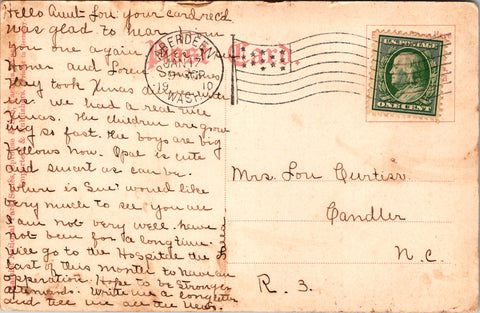 Hello Aunt Lou your card rec'd
was glad to hear from
you once again
Homer and Loren
they took Xmas dinner with
us. we had a real nice
Xmas. The children are grow-
ing so fast. the boys are big
fellows now. Opal is cute
and smart as can be.
where is Sue would like
very much to see you all
I am not very well. have
not been for a long time.
will go to the Hospital the
last of this month to have an
opperation. Hope to be stronger
afterwards. Write me a long letter
and tell me all the news.
Post Card.
ABERDEEN
JAN
1910
WASH.
U.S. POSTAGE
ONE CENT
Mrs. Lou Curtiss
Candler
N.C.
R. 3.